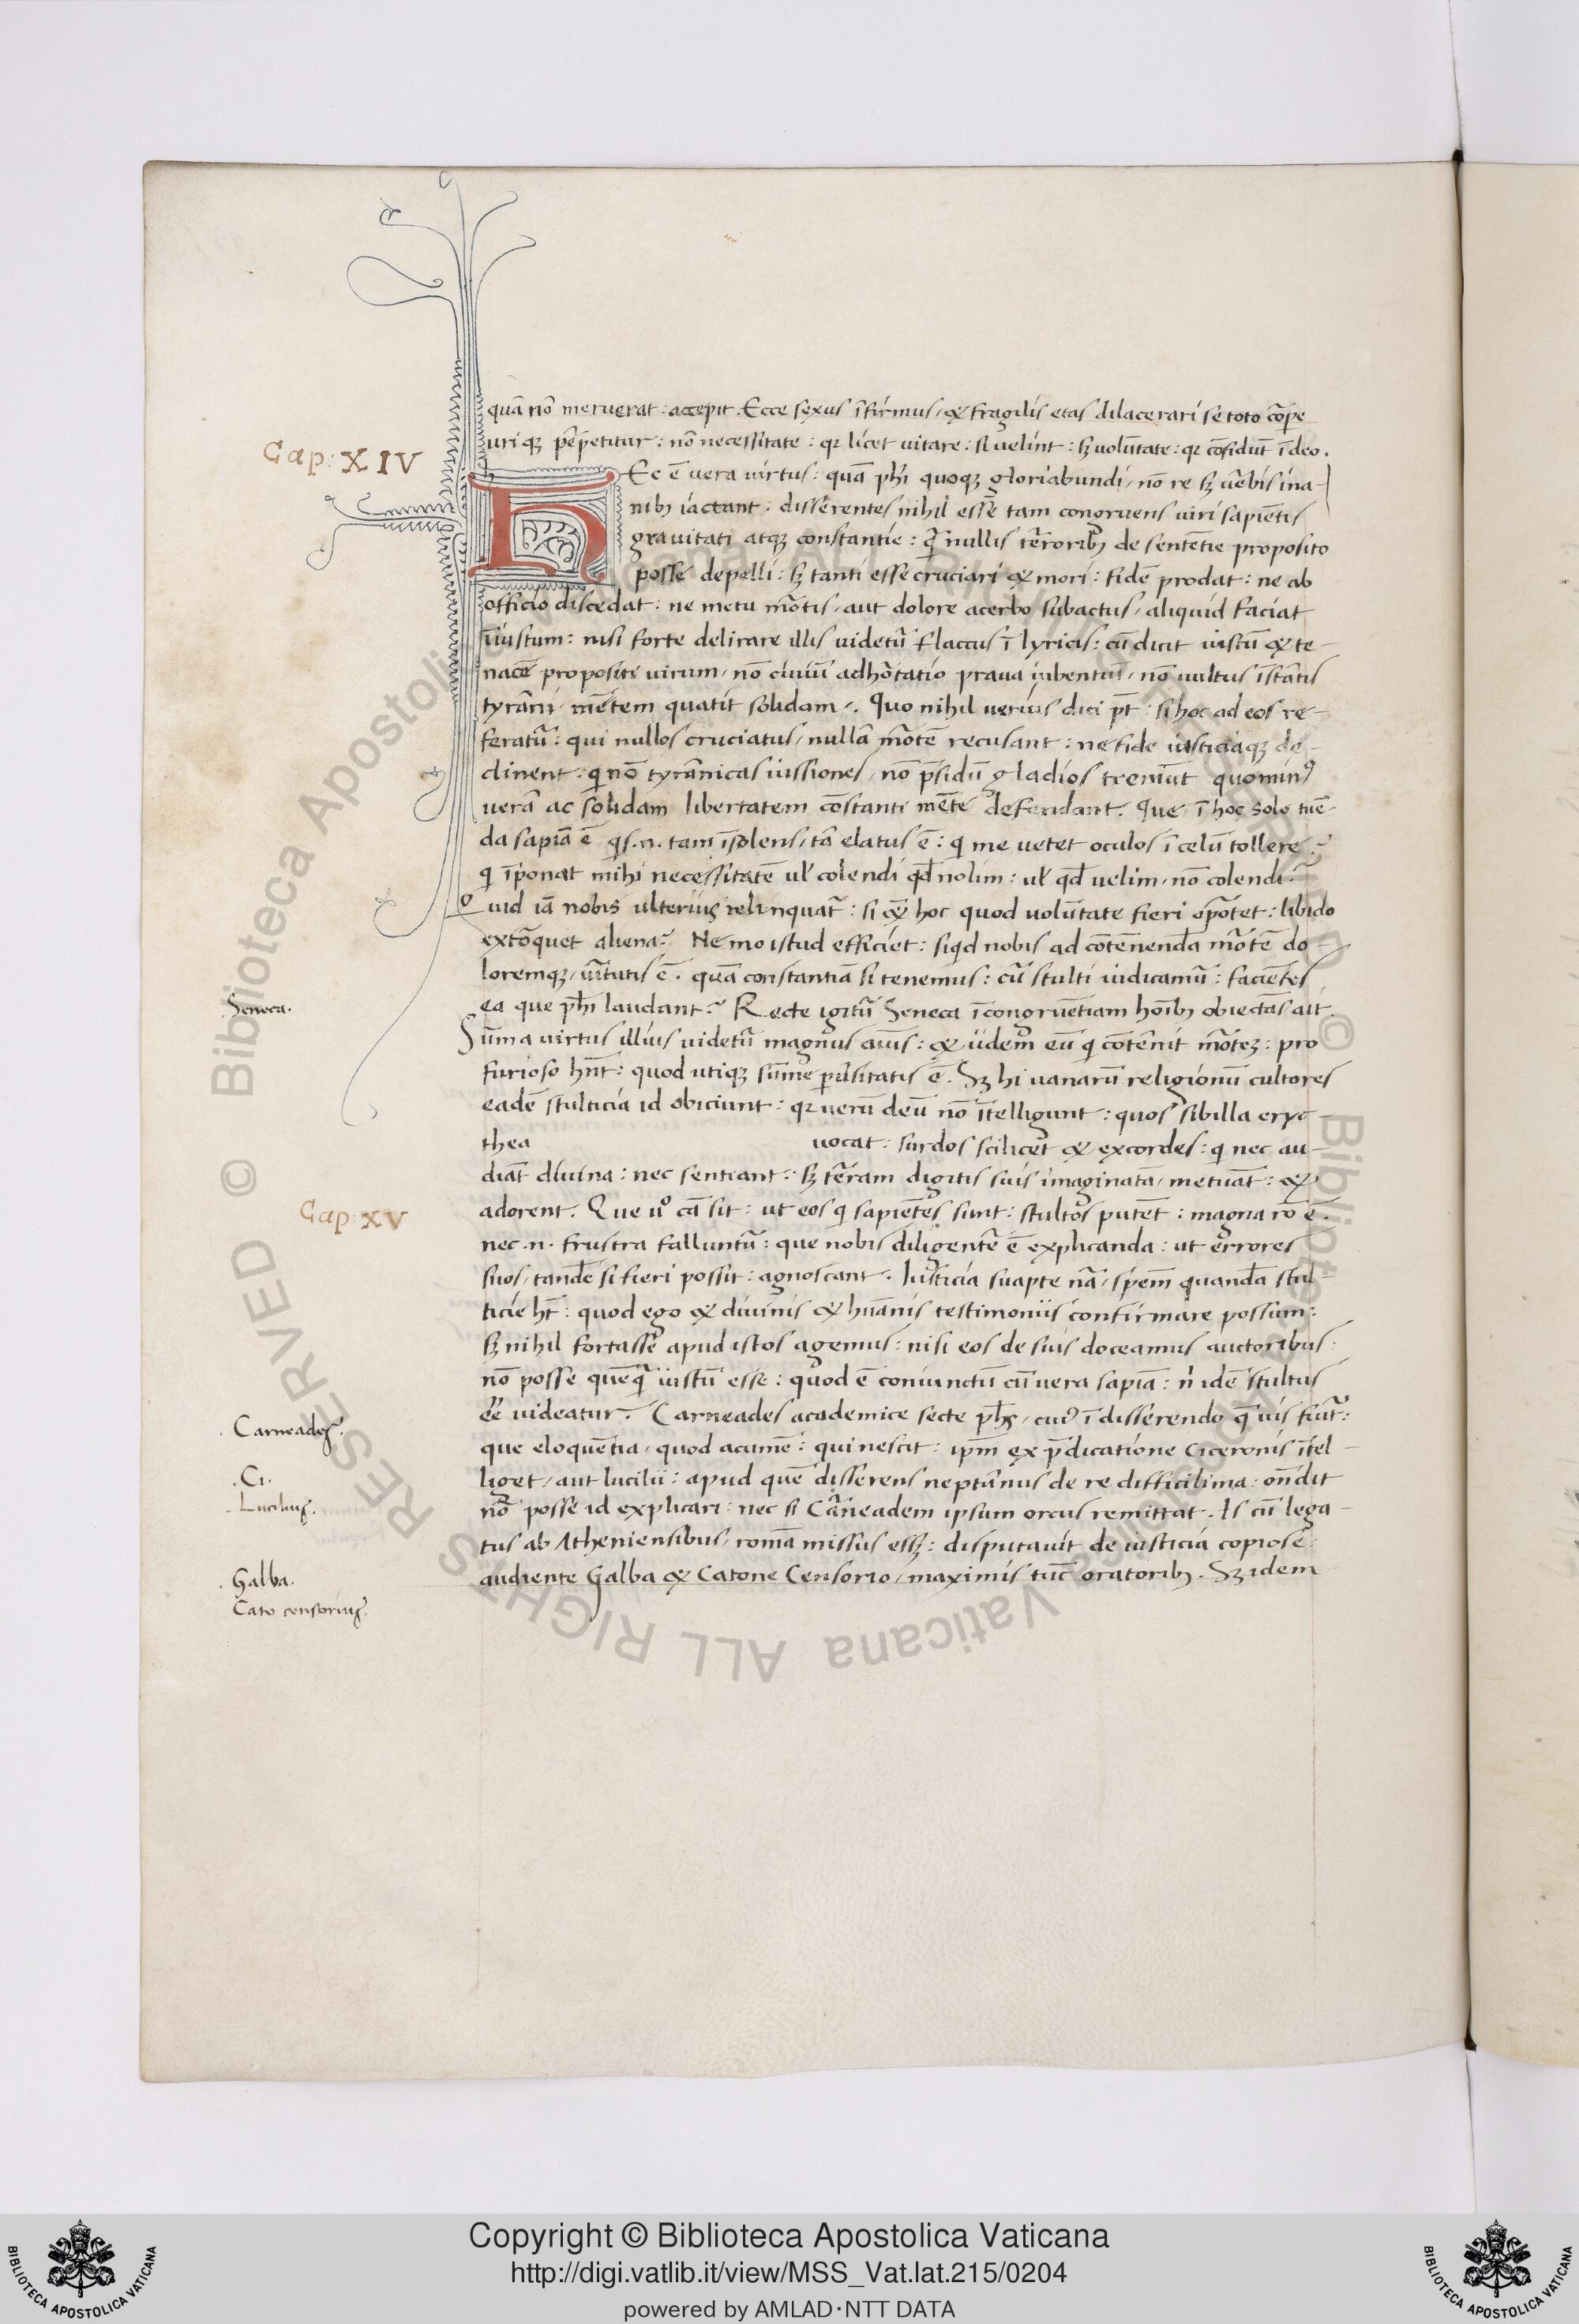 quā nō meruerat: accepit. Ecce sexus īfirmus, & fragilis etas dilacerari se toto corꝑe
Cap: XIV
uriqꝫ ꝑpetitur: nō necessitate: qꝛ licet uitare: si uelint: sꝫ volūtate: qꝛ cōfidūt ī deo.
HEc ē vera virtus: quā phi quoqꝫ gloriabundi, nō re sꝫ ūbis ina-
nibꝫ iactant: disserentes nihil esse tam congruens uiri sapiētis
gravitati atqꝫ constantie: q̄ nullis t̄roribꝫ de sentētie proposito
posse depelli: sꝫ tanti esse cruciari & mori: fidē prodat: ne ab
officio discedat: ne metu mōtis, aut dolore acerbo subactus, aliquid faciat
īiustum: nisi forte delirare illis videtū flaccus ī lyricis: cū dicit iustū & te-
nacē propositi virum, nō civiū adhōtatio prava iubentiū, nō vultus īstātis
tyrāni, mētem quatit solidam. Quo nihil verius dici pt: si hoc ad eos re-
feratū: qui nullos cruciatus, nullā mōtē recusant: ne fide iusticiaqꝫ de-
clinent: q nō tyrānicas iussiones, nō p̄sidū gladios tremūt quominꝰ
verā ac solidam libertatem cōstanti mēte defendant. Que ī hoc solo tuē-
da sapiā ē qs .n. tam īsolens, tā elatus ē: q me vetet oculos ī celū tollere?
q īponat mihi necessitatē ul' colendi qd nolim: ul' qd velim, nō colendi.
Quid iā nobis ulterius relinquat: si & hoc quod volūtate fieri opōtet: libido
extōquet aliena? Nemo istud efficiet: siqd nobis ad cōtēnendā mōtē do-
loremqꝫ, ūtutis ē. quā constantiā si tenemus: cū stulti iudicamū: faciētes
Seneca.
ea que phi laudant? Recte igitū Seneca īcongruētiam hoībꝫ obiectās ait.
Sūma virtus illius videtū magnus aīus: & iidem eū q cōtēnit mōteꝫ: pro
furioso hnt: quod utiqꝫ sūme ꝑusitatis ē. Sꝫ hi vanarū religionū cultores
eadē stulticia id obiciunt: qꝛ verū deū nō ītelligunt: quos sibilla eryc-
thea vocat: surdos scilicet & excordes: q nec au-
diāt divina: nec sentiant: sꝫ t̄ram digitis suis imaginatā, metuāt: &
Cap: XV
adorent. Que uº cā sit: ut eos q sapiētes sunt: stultos putēt: magna rō ē.
nec .n. frustra falluntū: que nobis diligentē ē explicanda: ut errores
suos, tandē si fieri possit: agnoscant. Iusticia suapte nā, spēm quandā stul-
ticie ht: quod ego & divinis & huānis testimoniis confirmare possum:
sꝫ nihil fortasse apud istos agemus: nisi eos de suis doceamus auctoribus:
nō posse quēq̄ iustū esse: quod ē coniunctū cū vera sapiā: n idē stultus
Carneades.
eē videatur. Carneades academice secte phs, cuiꝰ ī disserendo q̄ vis fuit:
que eloquētia, quod acumē: qui nescit: ipm ex p̄dicatione Ciceronis ītel-
Ci.
liget, aut lucilii: apud quē disserens neptūnus de re difficilima: ondit
Lucilius.
nō posse id explicari: nec si Cārneadem ipsum orcus remittat. Is cū lega-
tus ab Atheniensibus, romā missus essꝫ: disputavit de iusticia copiose:
Galba.
audiente Galba & Catone Censorio, maximis tūc oratoribꝫ. Sꝫ idem
Cato censorius.
Copyright © Biblioteca Apostolica Vaticana
http://digi.vatlib.it/view/MSS_Vat.lat.215/0204
powered by AMLAD·NTT DATA
BIBLIOTECA APOSTOLICA VATICANA
BIBLIOTECA APOSTOLICA VATICANA